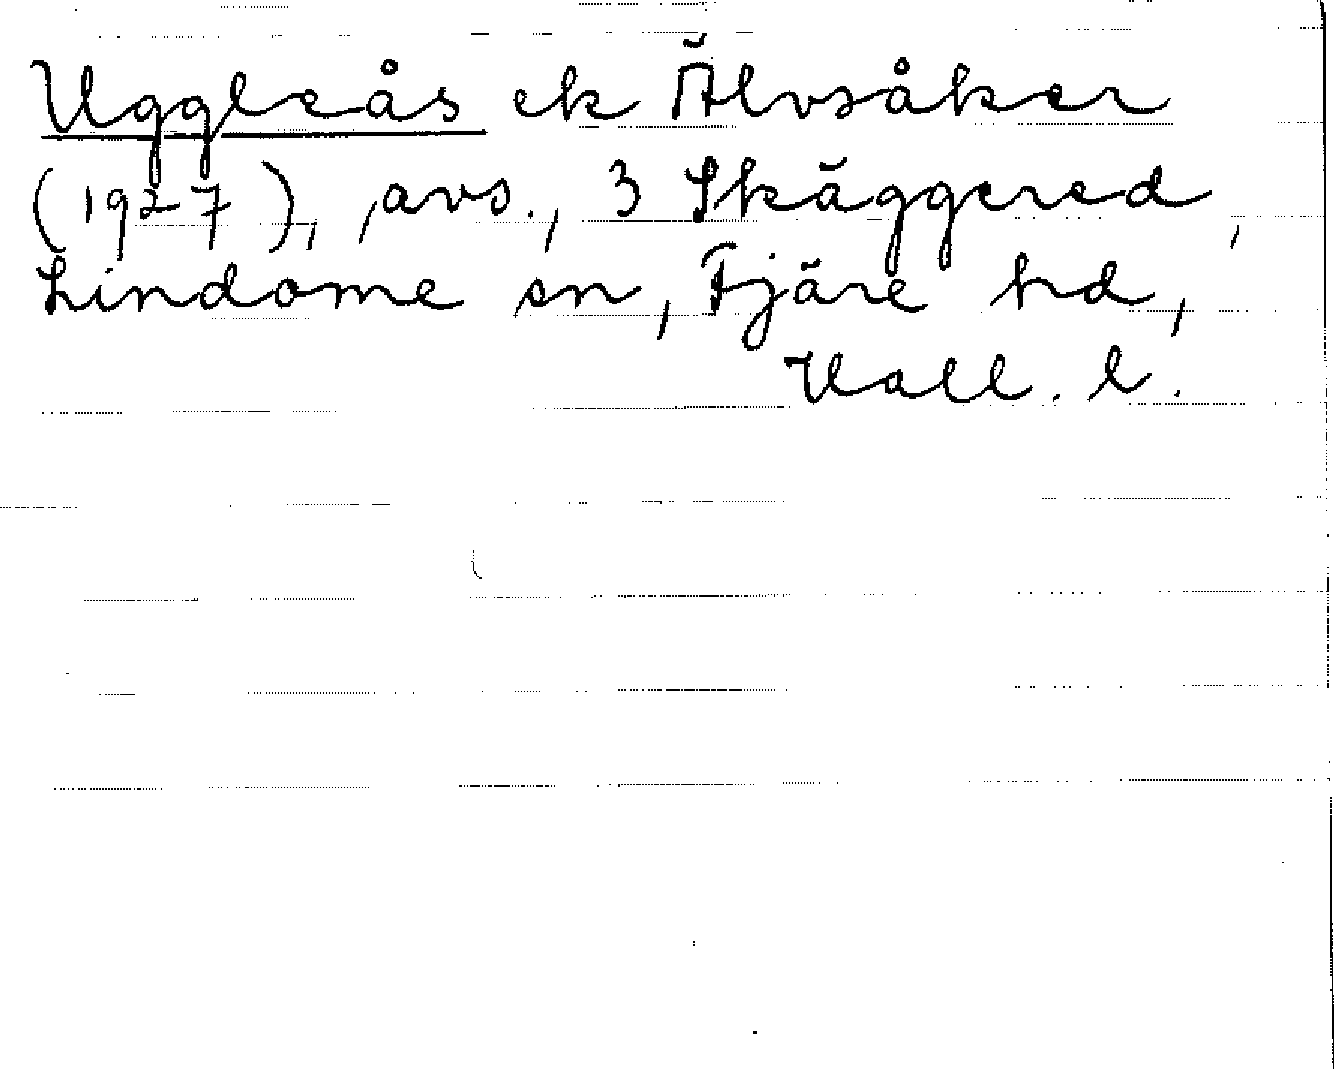 Uggleås ek Älvsåker
(1927), avs., 3 Skäggered,
Lindome sn, Fjäre hd,
Hall. l.